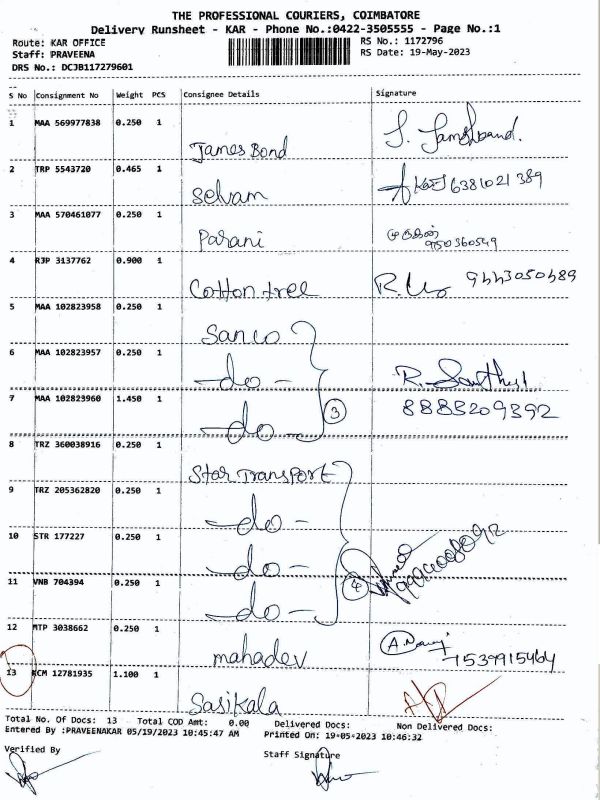 THE PROFESSIONAL COURIERS, COIMBATORE
Delivery Runsheet - KAR - Phone No.:0422-3505555 - Page No.:1
Route: KAR OFFICE
RS No.: 1172796
Staff: PRAVEENA
RS Date: 19-May-2023
DRS No.: DCJB117279601
S No Consignment No Weight PCS Consignee Details Signature
1 MAA 569977838 0.250 1
James Bond
2 TRP 5543720 0.465 1
Selvam 6381021389
3 MAA 570461077 0.250 1
Parani முருகன்
950360549
4 RJP 3137762 0.900 1
Cotton tree
5 MAA 102823958 0.250 1
Sanco
6 MAA 102823957 0.250 1
-do-
7 MAA 102823960 1.450 1
-do- 3 8883209392
8 TRZ 360038916 0.250 1
Star Transport
9 TRZ 205362820 0.250 1
-do-
10 STR 177227 0.250 1
-do-
11 VNB 704394 0.250 1
-do- 4
12 MTP 3038662 0.250 1
mahadev 7539915464
13 KCM 12781935 1.100 1
Sasikala
Total No. Of Docs: 13 Total COD Amt: 0.00 Delivered Docs: Non Delivered Docs:
Entered By :PRAVEENAKAR 05/19/2023 10:45:47 AM Printed On: 19-05-2023 10:46:32
Verified By
Staff Signature